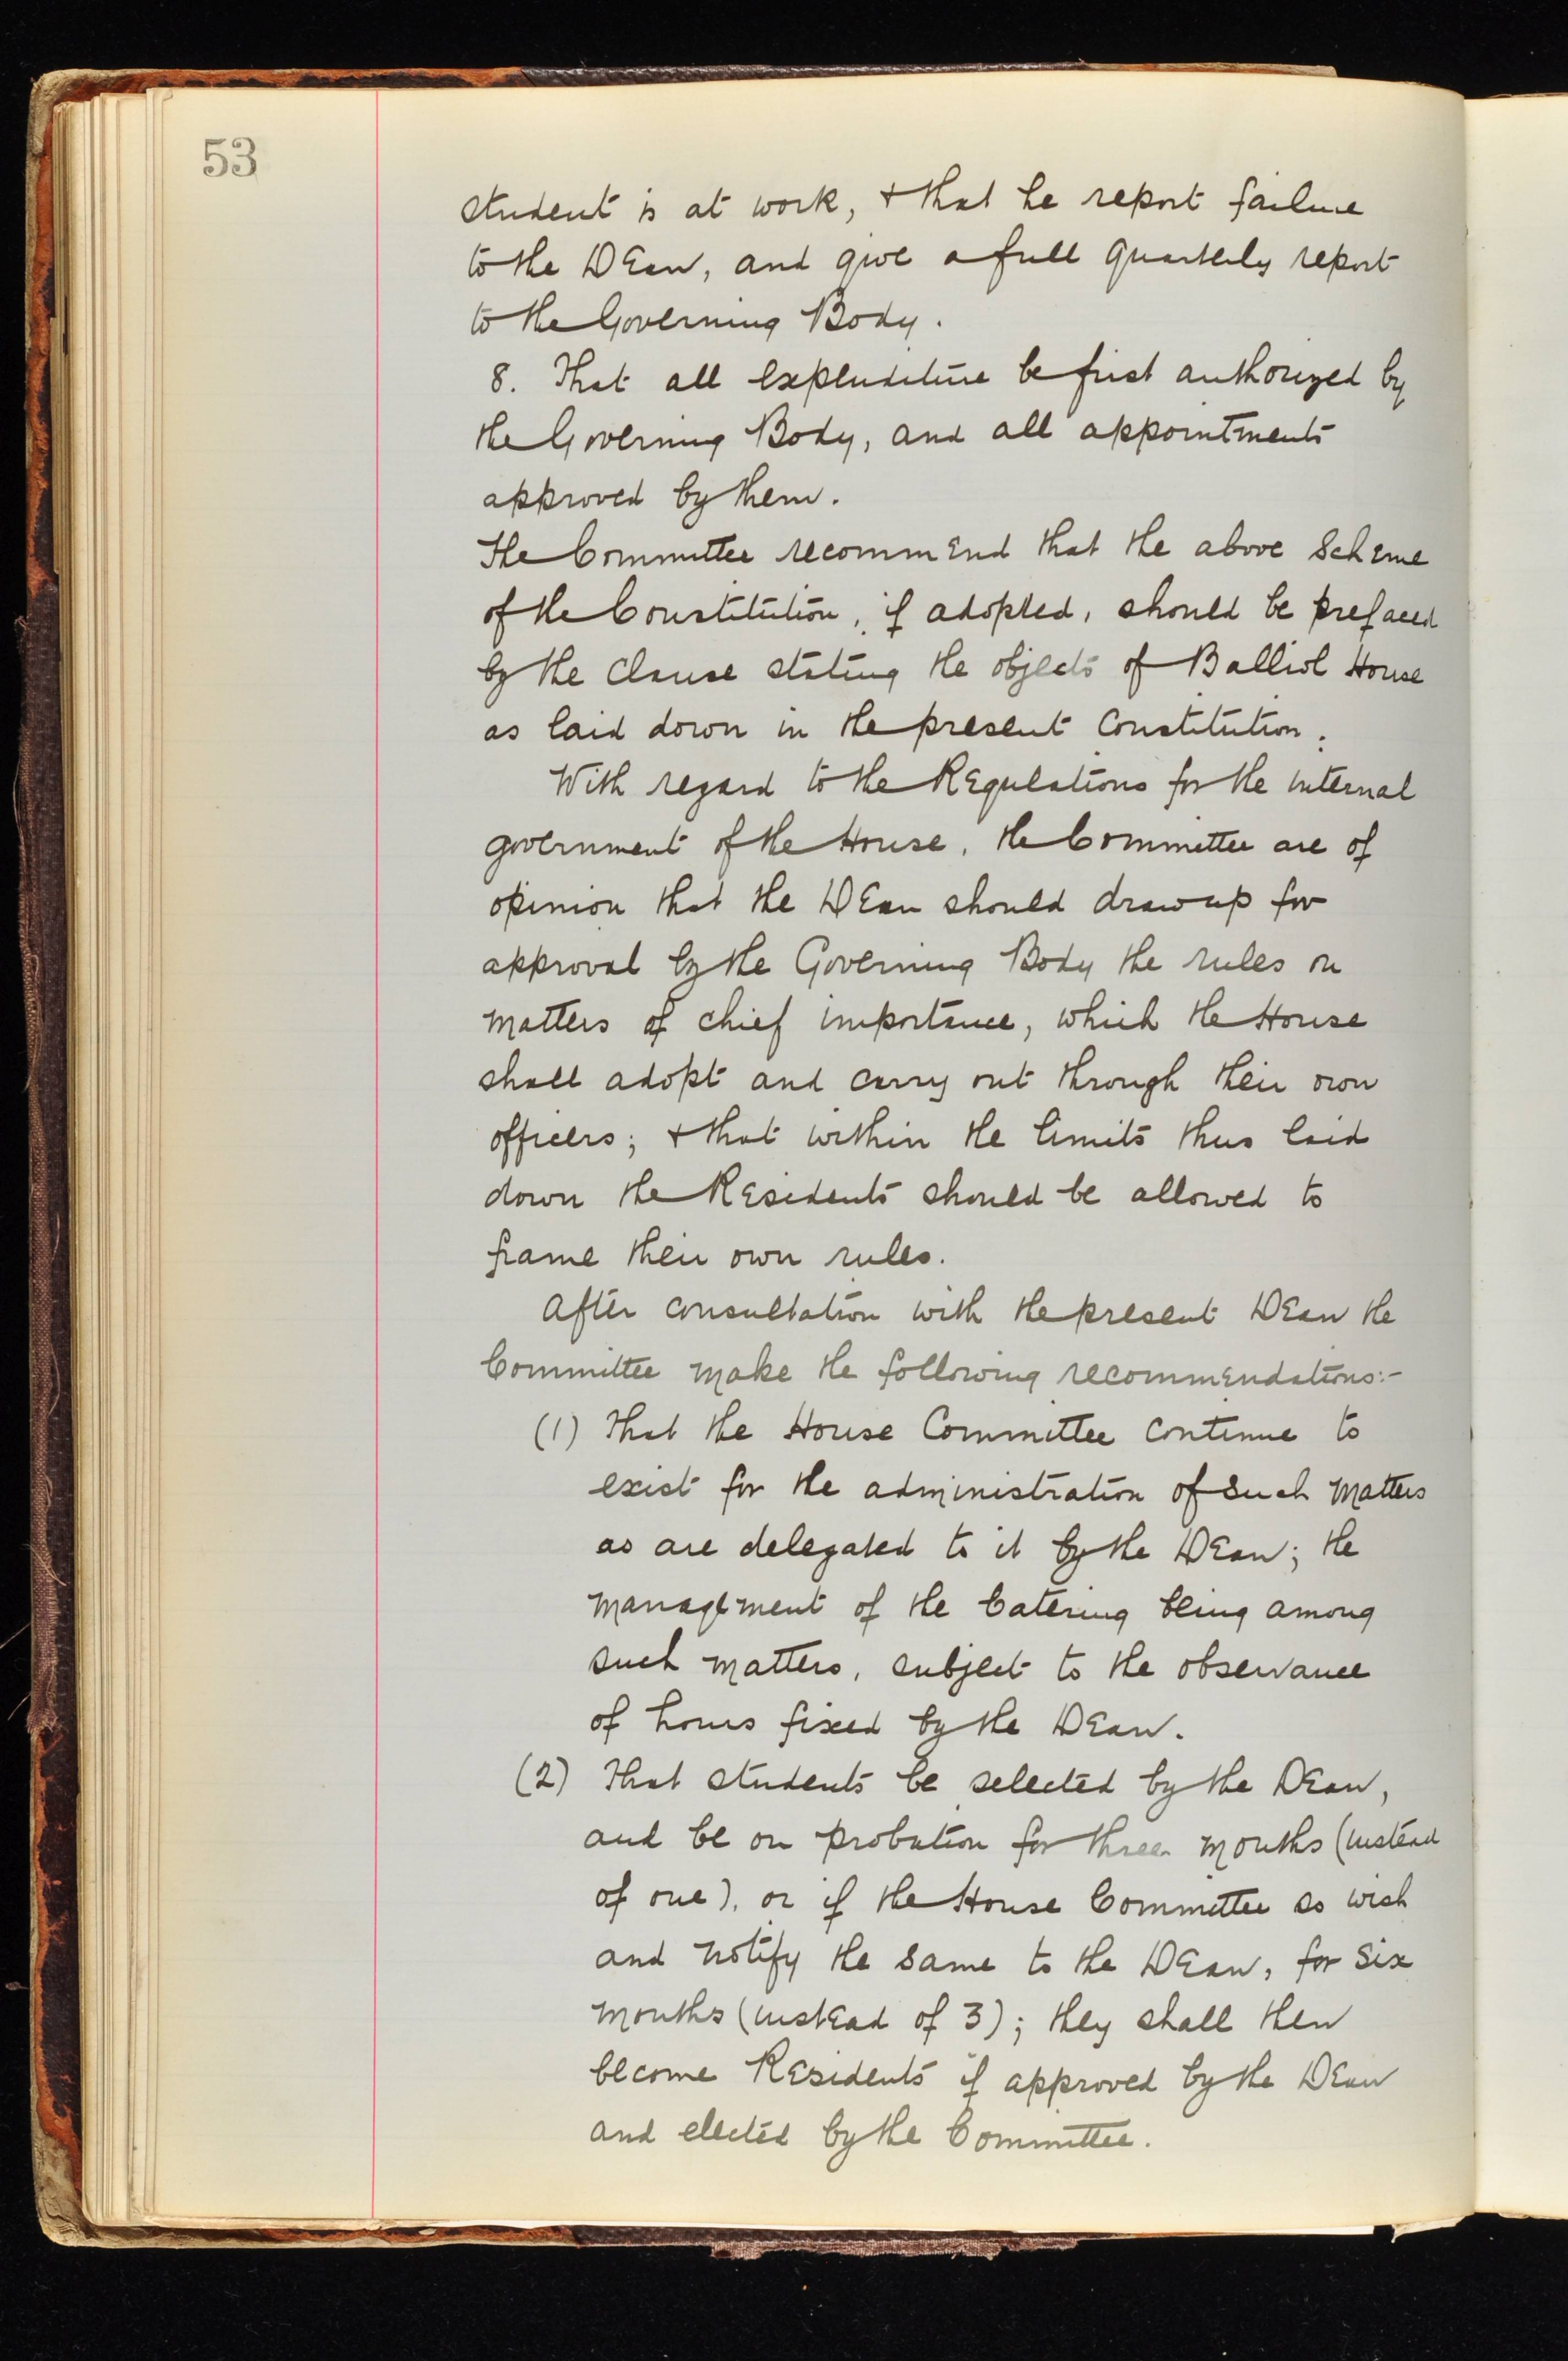 53
student is at work, & that he report failure
to the Dean, and give a full quarterly report
to the Governing Body.
8. That all expenditure be first authorized by
the Governing Body, and all appointments
approved by them.
The Committee recommend that the above Scheme
of the Constitution, if adopted, should be prefaced
by the clause stating the objects of Balliol House
as laid down in the present Constitution.
With regard to the Regulations for the internal
government of the House, the Committee are of
opinion that the Dean should draw up for
approval by the Governing Body the rules on
matters of chief importance, which the House
shall adopt and carry out through their own
officers; & that within the limits thus laid
down the Residents should be allowed to
frame their own rules.
After consultation with the present Dean the
Committee make the following recommendations:-
(1) That the House Committee continue to
exist for the administration of such matters
as are delegated to it by the Dean; the
management of the Catering being among
such matters, subject to the observance
of hours fixed by the Dean.
(2) That students be selected by the Dean,
and be on probation for three months (instead
of one), or if the House Committee so wish
and notify the same to the Dean, for six
months (instead of 3); they shall then
become Residents if approved by the Dean
and elected by the Committee.